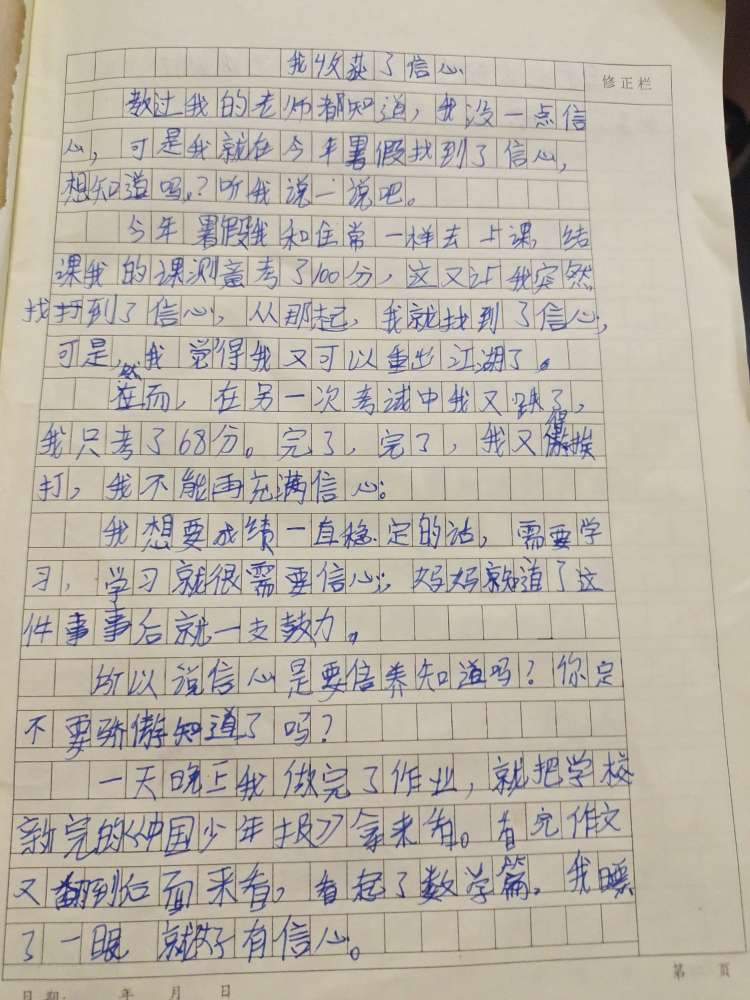 我收获了信心
修正栏
教过我的老师都知道，我没一点信
心，可是我就在今年暑假找到了信心，
想知道吗？听我说一说吧。
今年暑假我和往常一样去上课，结
课我的课测竟考了100分，这又让我突然
找到了信心，从那起，我就找到了信心，
可是，我觉得我又可以重出江湖了。
然而，在另一次考试中我又跌了，
我只考了68分。完了，完了，我又得挨
打，我不能再充满信心。
我想要成绩一直稳定的话，需要学
习，学习就很需要信心，妈妈知道了这
件事事后就一支鼓力。
所以说信心是要信养知道吗？你定
不要骄傲知道了吗？
一天晚上我做完了作业，就把学校
新完的《中国少年报》拿来看。看完作文
又翻到后面来看，看起了数学篇。我瞟
了一眼 就好有信心。
第 页
日期： 年 月 日